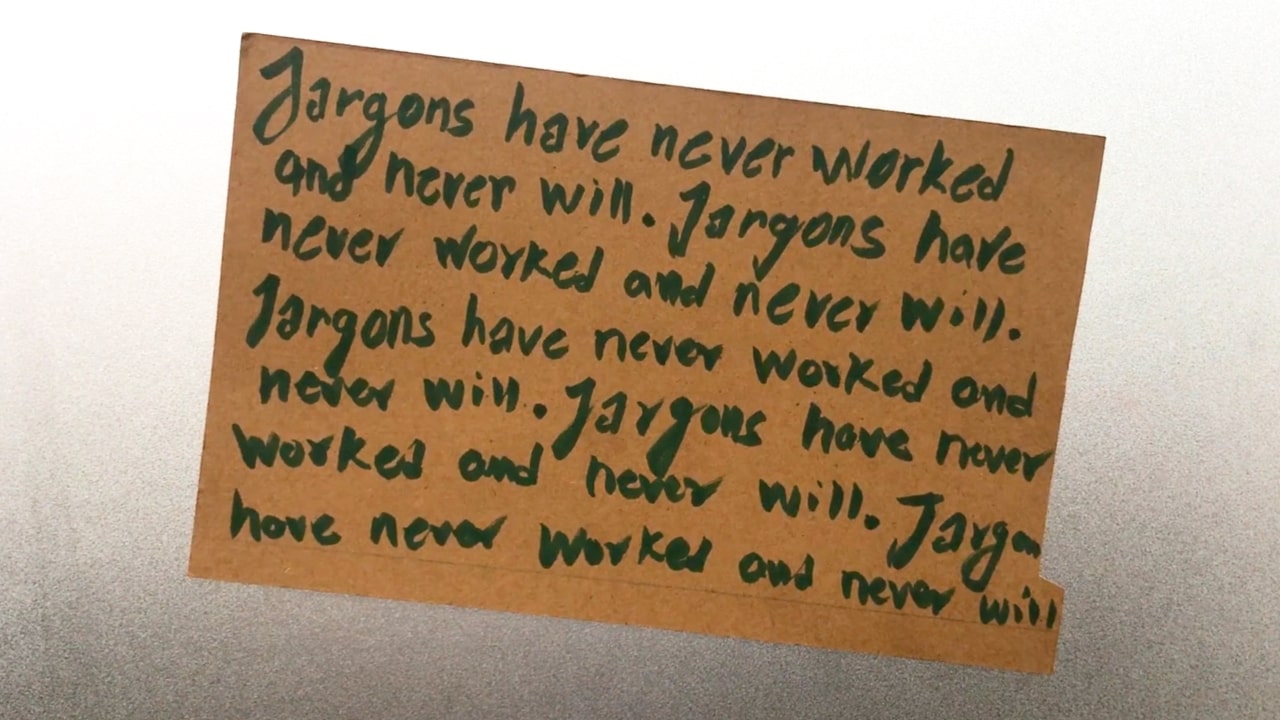 Jargons have never worked
and never will. Jargons have
never worked and never will.
Jargons have never worked and
never will. Jargons have never
worked and never will. Jargon
have never worked and never will